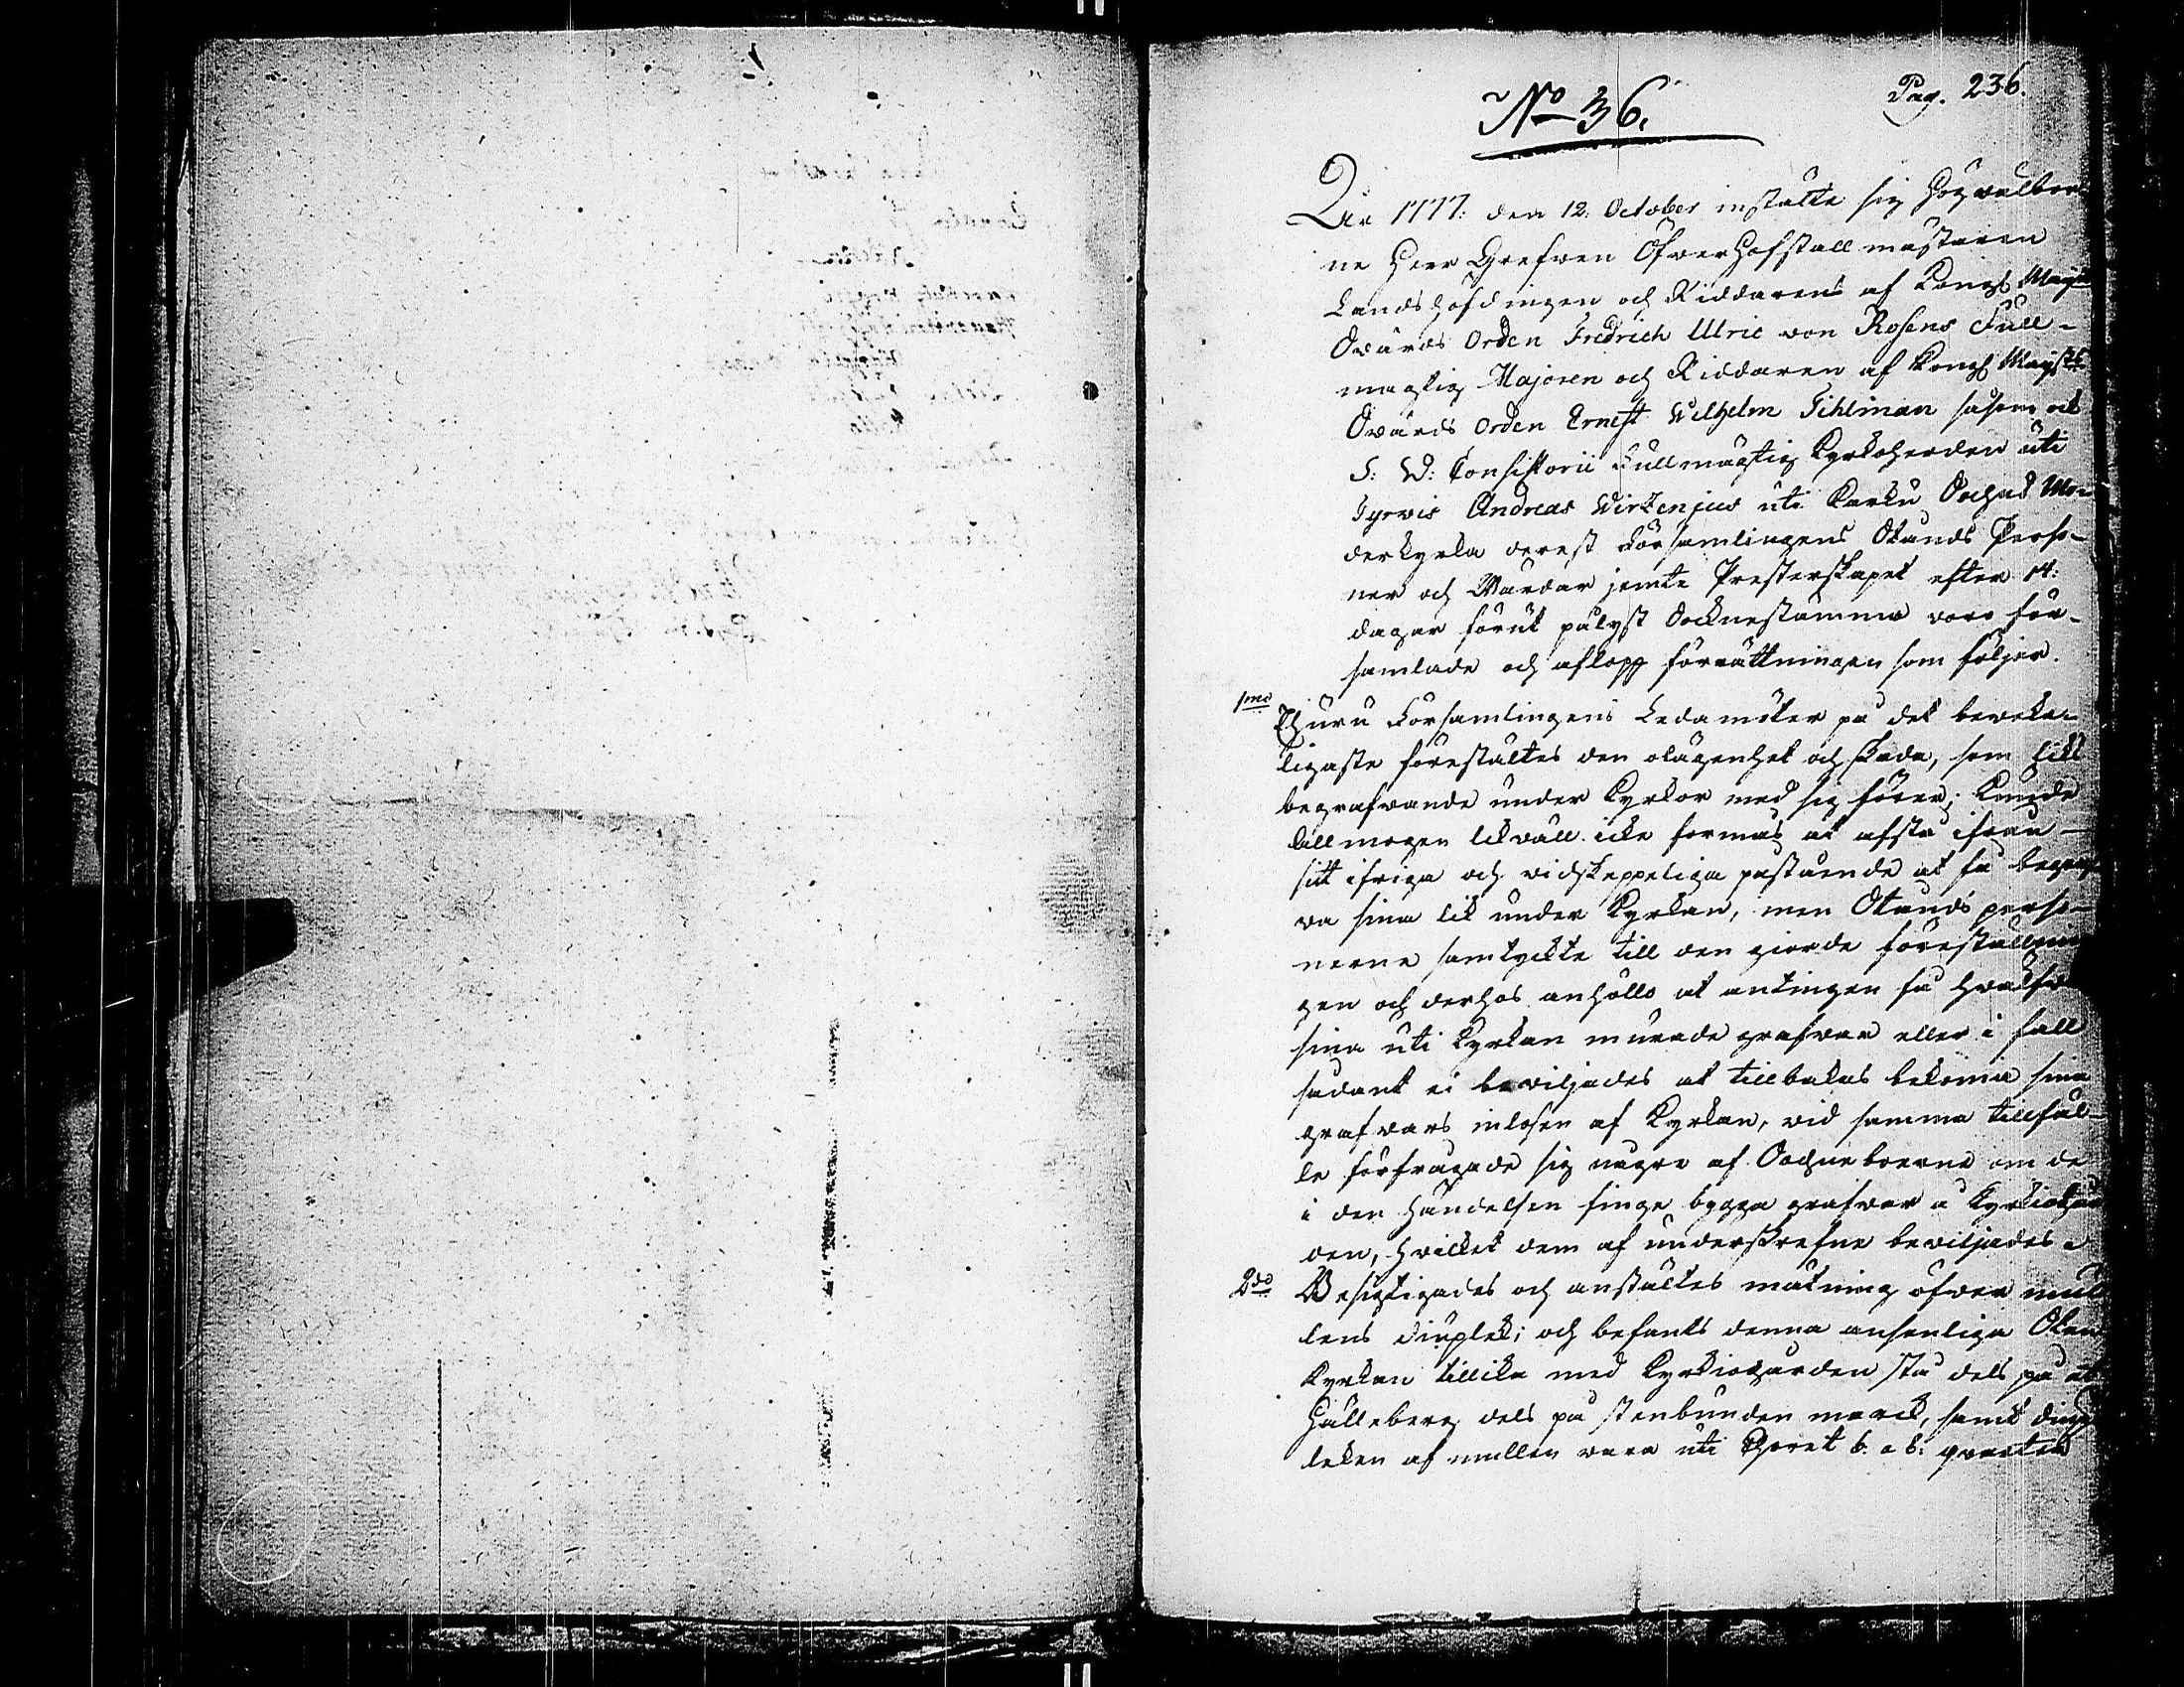 Pag. 236.
No 36.
År 1777: den 12: October instälte sig Högwälbor
ne Herr Grefwen Öfwerhofstallmästaren
Landshöfdingen och Riddarens af Kongl Maj:ts
Swärds Orden Fredrich Ulric von Rosens Full-
mägtig Majoren och Riddaren af Kongl Maj:ts
Swärds Orden Ernest Wilhelm Tihleman såsom ock
S: W: Consistorii Fullmägtig Kyrkoherden uti
Tyrvis Andreas Wirzenius uti Karku Sochns Mo-
derkyrka derest Församlingens Stånds Perso-
ner och Bönder jemte Presterskapet efter 14:
dagar förut pålyst Socknestämma voro för-
samlade och aflopp förrättningen som följer.
1mo Ehuru Församlingens Ledamöter på det beveke-
ligaste förestältes den olägenhet och skada, som likt
begrafwande under Kyrkor med sig förer; kunde
allmogen likwäll icke förmås at afstå ifrån
sitt ifriga och vidskeppeliga påstående at få begraf
va sina lik under Kyrkan, men Stånds perso-
nerne samtyckte till den giorde föreställnin
gen och derhos anhöllo at antingen få hwälfwa
sina uti Kyrkan murade grafwar eller i fall
sådant ei beviljades at tillbakas bekomma sina
grafwars inlösen af Kyrkan, vid samma tillfäl-
le förfrågade sig några af Sockneboerne om de
i den händelsen finge bygga grafwar å Kyrkiogår
den, hvilket dem af underskrefne beviljades.
2do Besigtigades och anstältes mätning öfver mul
lens diuplek; och befants denna ansenliga Sten
Kyrkan tillika med Kyrkiogården stå dels på et
Hälleberg dels på stenbunden marck, samt diup
leken af mullen vara uti Choret 6 a 8: qvarter